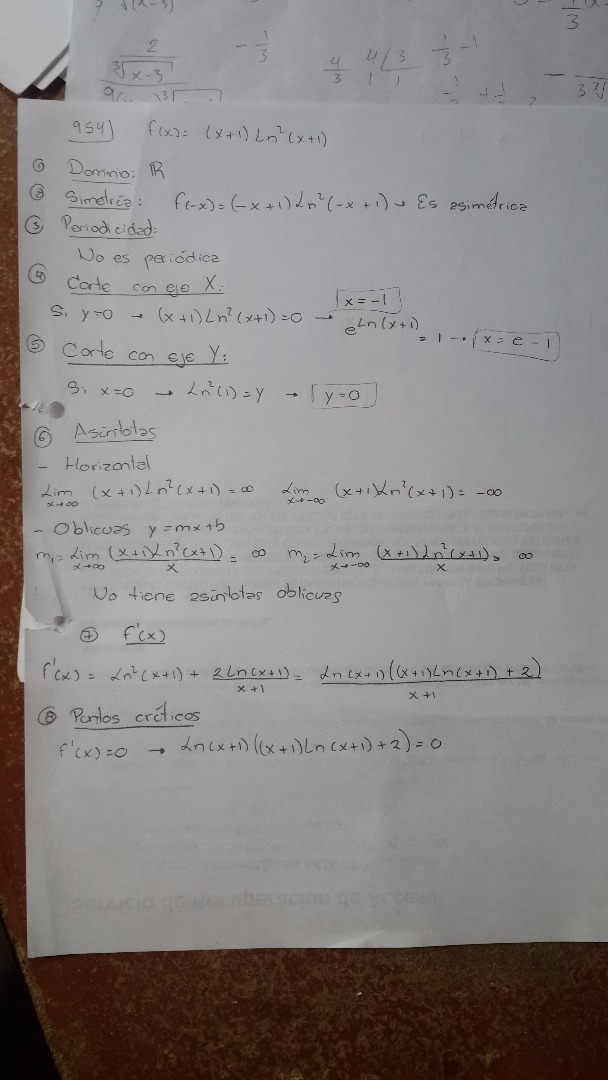 √(x-3)
2
∛x-3
- 1/3
4/3
4 ⌊3
1 1
1/3 -1
954) f(x)= (x+1) Ln²(x+1)
① Dominio: ℝ
② Simetría: f(-x)=(-x+1)Ln²(-x+1) → Es asimétrica
③ Periodicidad:
No es periódica
④ Corte con eje X:
Si y=0 → (x+1)Ln²(x+1)=0 → x=-1
e^Ln(x+1) = 1 → x = e - 1
⑤ Corte con eje Y:
Si x=0 → Ln²(1)=y → y=0
⑥ Asíntotas
- Horizontal
Lim x→∞ (x+1)Ln²(x+1)=∞ Lim x→-∞ (x+1)Ln²(x+1)= -∞
- Oblicuas y=mx+b
m₁= Lim x→∞ (x+1)Ln²(x+1)/x = ∞ m₂= Lim x→-∞ (x+1)Ln²(x+1)/x = ∞
No tiene asíntotas oblicuas
⑦ f'(x)
f'(x)= Ln²(x+1)+ 2Ln(x+1)/x+1 = Ln(x+1)((x+1)Ln(x+1)+2)/x+1
⑧ Puntos críticos
f'(x)=0 → Ln(x+1)((x+1)Ln(x+1)+2)=0
Servicio de Recuperación de Acceso